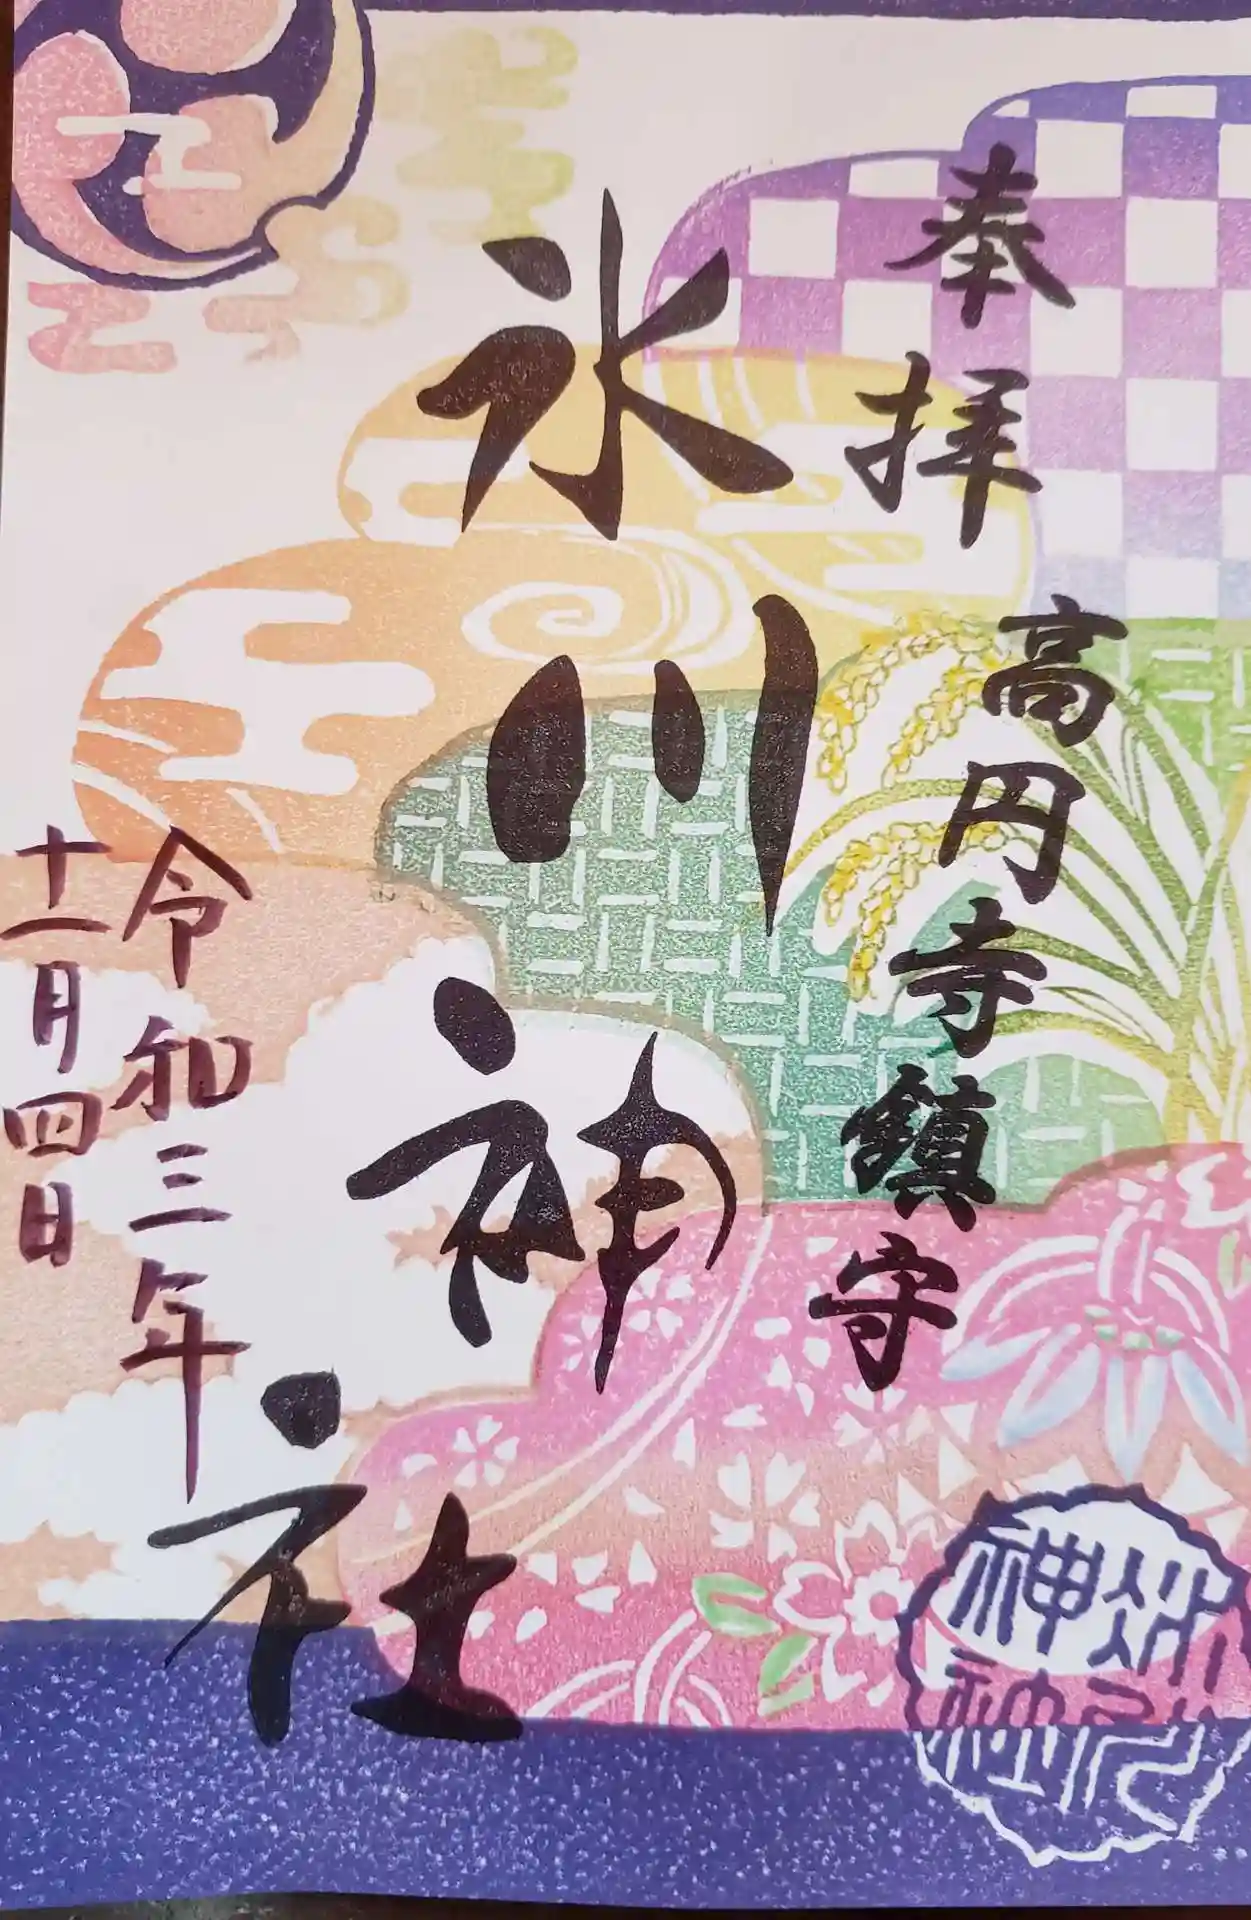 奉拝
高円寺鎮守
氷川神社
令和三年
十一月四日